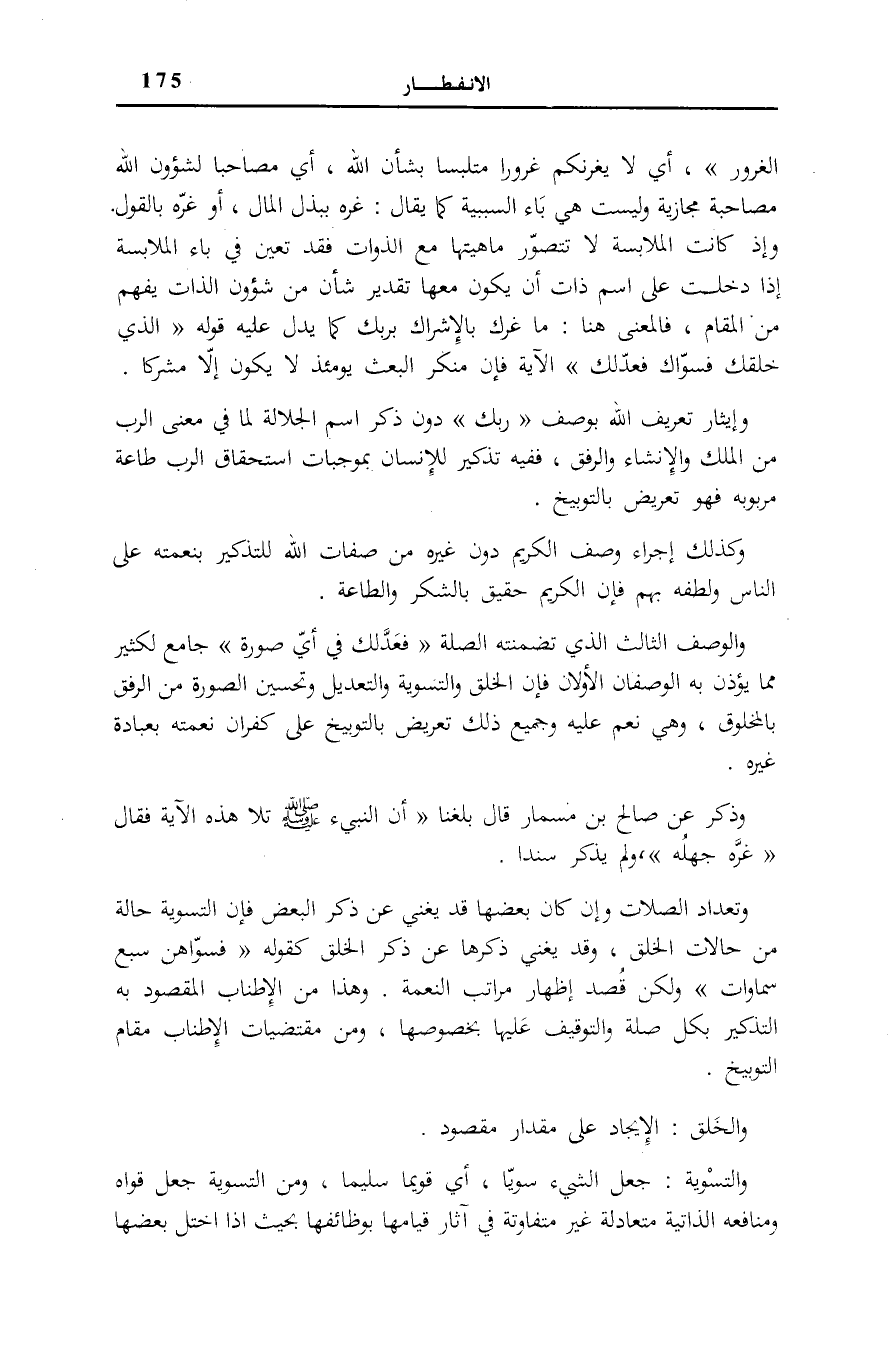 الانفطار 175
الغرور » ، أي لا يغرنكم غرورا متلبسا بشأن الله ، أي مصاحبا لشؤون الله
مصاحبة مجازية وليست هي بَاء السببية كما يقال : غره ببذل المال ، أو غرّه بالقول.
وإذ كانت الملابسة لا تتصوّر ماهيتها مع الذوات فقد تعين في باء الملابسة
إذا دخلت على اسم ذات أن يكون معها تقدير شأن من شؤون الذات يفهم
من المقام ، فالمعنى هنا : ما غرك بالإشراك بربك كما يدل عليه قوله « الذي
خلقك فسوّاك فعدّلك » الآية فإن منكر البعث يومئذ لا يكون إلّا مشركا .
وإيثار تعريف الله بوصف « ربك » دون ذكر اسم الجلالة لما في معنى الرب
من الملك والإنشاء والرفق ، ففيه تذكير للإنسان بموجبات استحقاق الرب طاعة
مربوبه فهو تعريض بالتوبيخ .
وكذلك إجراء وصف الكريم دون غيره من صفات الله للتذكير بنعمته على
الناس ولطفه بهم فإن الكريم حقيق بالشكر والطاعة .
والوصف الثالث الذي تضمنته الصلة « فعَدَّلك في أيّ صورة » جامع لكثير
مما يؤذن به الوصفان الأولان فإن الخلق والتسوية والتعديل وتحسين الصورة من الرفق
بالمخلوق ، وهي نعم عليه وجميع ذلك تعريض بالتوبيخ على كفران نعمته بعبادة
غيره .
وذكر عن صالح بن مسمار قال بلغنا « أن النبيء ﷺ تلا هذه الآية فقال
« غرَّه جهلُه »، ولم يذكر سندا .
وتعداد الصلات وإن كان بعضها قد يغني عن ذكر البعض فإن التسوية حالة
من حالات الخلق ، وقد يغني ذكرها عن ذكر الخلق كقوله « فسوّاهن سبع
سماوات » ولكن قُصد إظهار مراتب النعمة . وهذا من الإطناب المقصود به
التذكير بكل صلة والتوقيف عَليها بخصوصها ، ومن مقتضيات الإطناب مقام
التوبيخ .
والخَلق : الإيجاد على مقدار مقصود .
والتسْوية : جعل الشيء سويّا ، أي قويما سليما ، ومن التسوية جعل قواه
ومنافعه الذاتية متعادلة غير متفاوتة في آثار قيامها بوظائفها بحيث اذا اختل بعضها